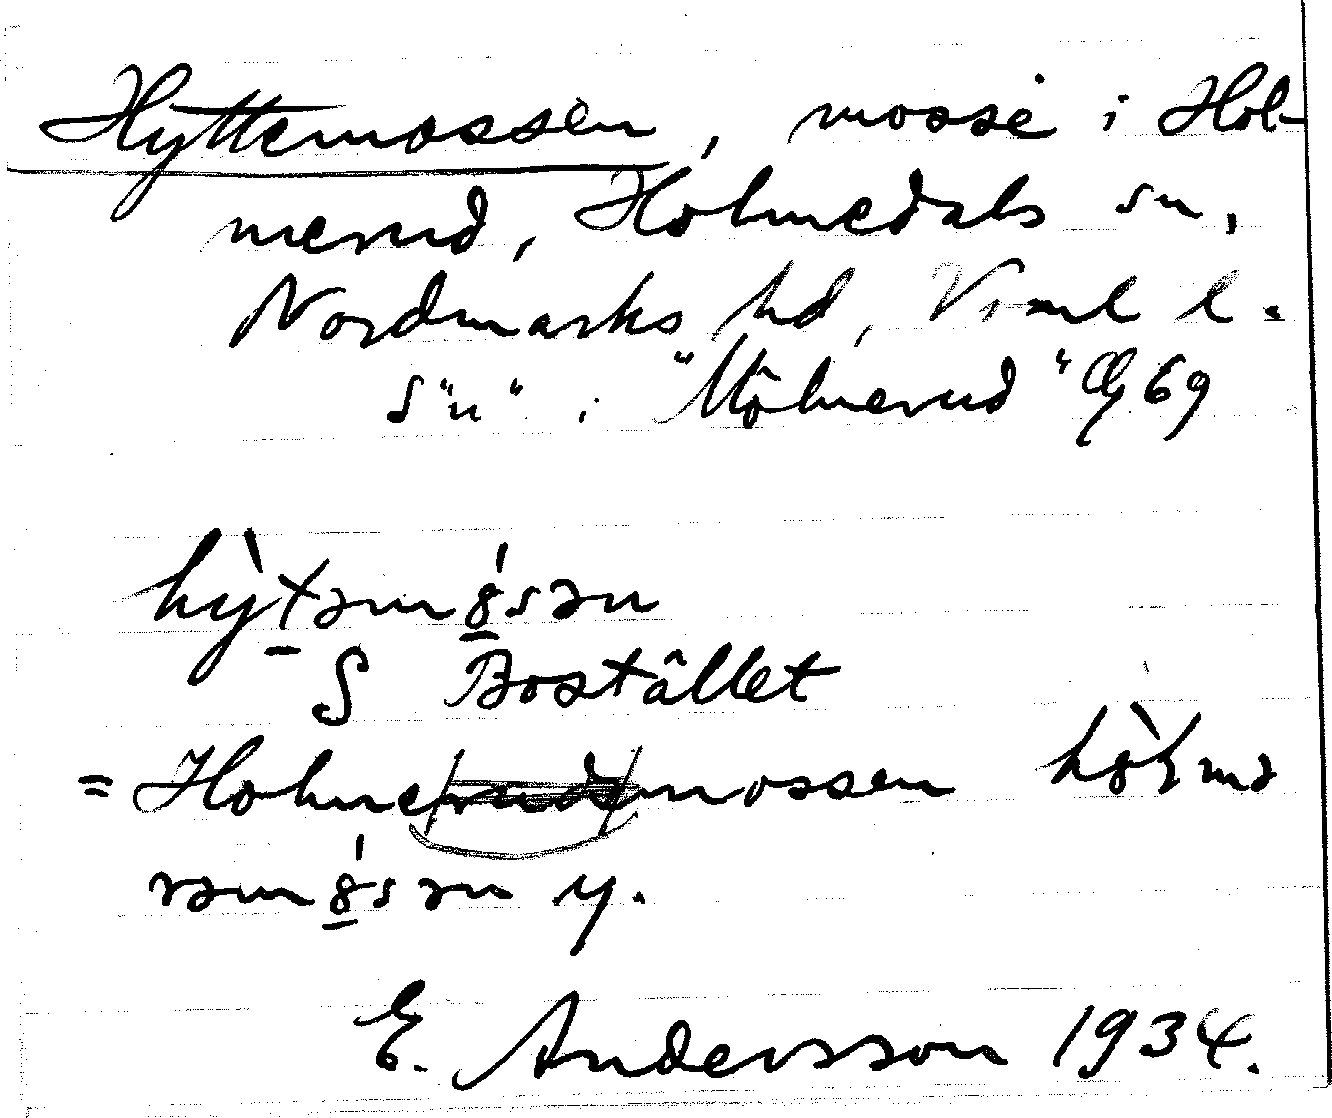 Hyttemossen, mosse i Hol-
merud, Holmedals sn,
Nordmarks hd, Vrml l.
S "n" i "Mölnerud" Œg 69
hỳtəmósən
S Boståället
= Holmerudmossen hòlmə
rəmósən y.
E. Andersson 1934.